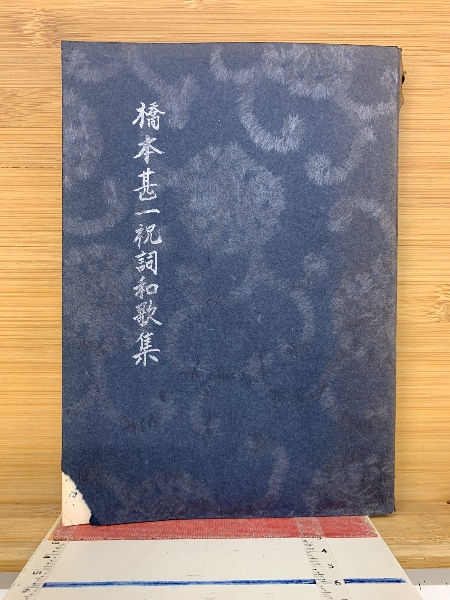 橋本甚一祝詞和歌集